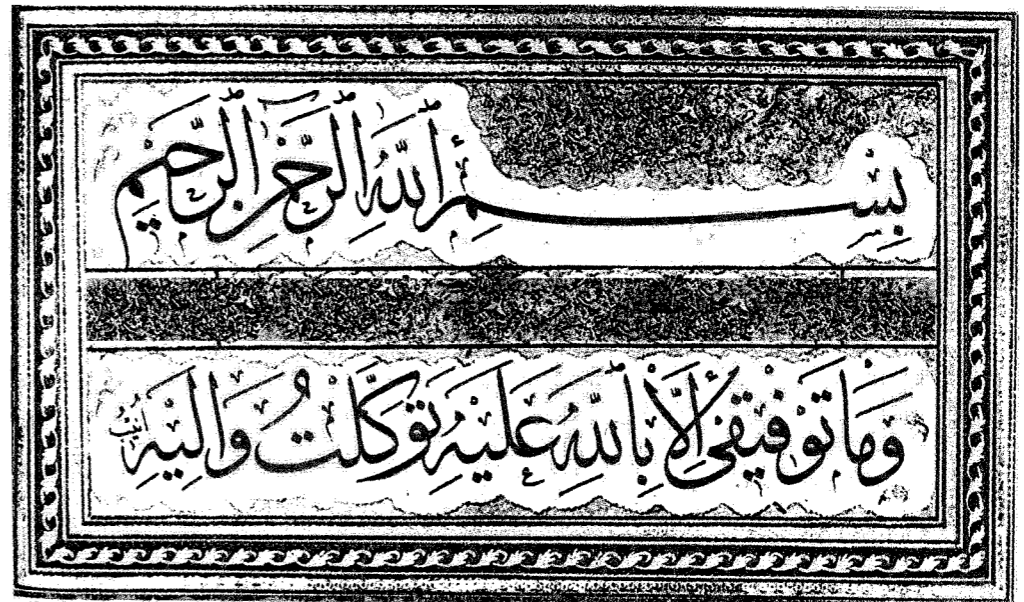 بِسْمِ اللّٰهِ الرَّحْمٰنِ الرَّحِيمِ
وَمَا تَوْفِيقِى اِلَّا بِاللّٰهِ عَلَيْهِ تَوَكَّلْتُ وَاِلَيْهِ اُنِيبُ